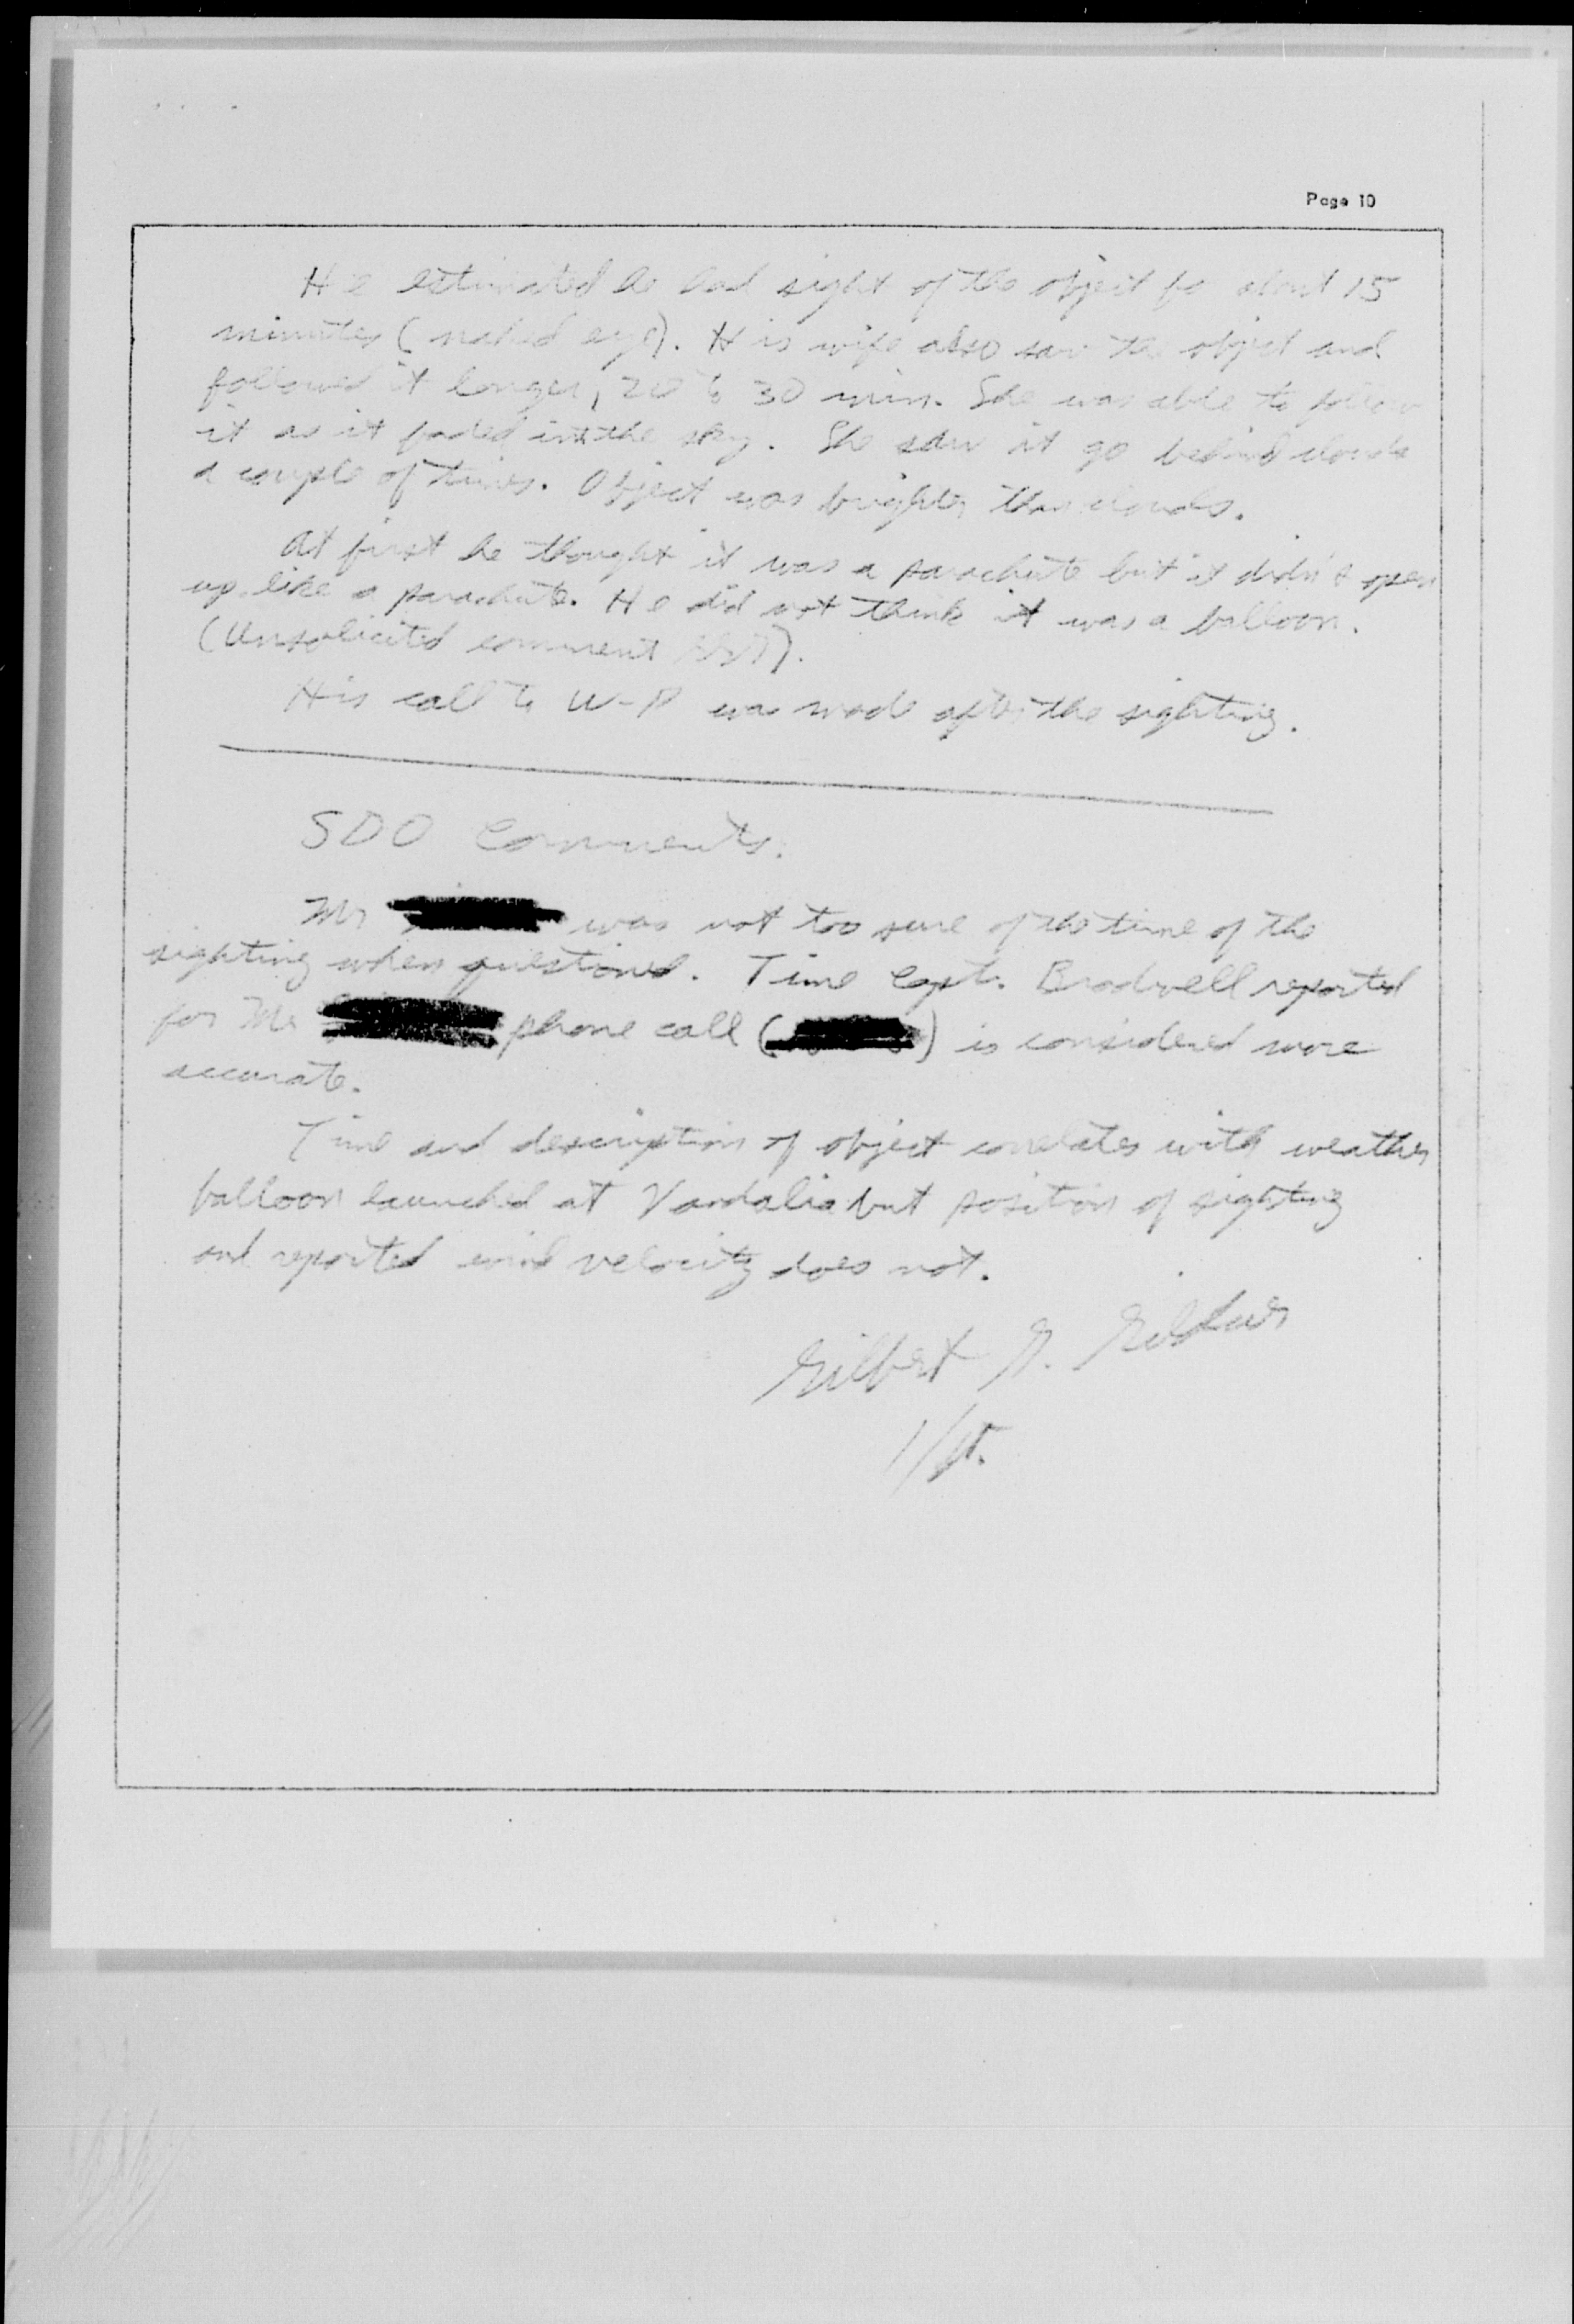 Page 10
He estimated he had sight of the object fo about 15
minutes (naked eye). His wife also saw the object and
followed it longer, 20 to 30 min. She was able to follow
it as it faded into the sky. She saw it go behind clouds
a couple of times. Object was brighter than clouds.
At first he thought it was a parachute but it didn't open
up like a parachute. He did not think it was a balloon.
(Unsolicited comment).
His call to W-P was made after the sighting.
SDO Comments.
Mr was not too sure of the time of the
sighting when questioned. Time Capt. Brodwell reported
for Mr phone call ( ) is considered more
accurate.
Time and description of object correlates with weather
balloon launched at Vandalia but position of sighting
and reported wind velocity does not.
Gilbert G.
1/Lt.